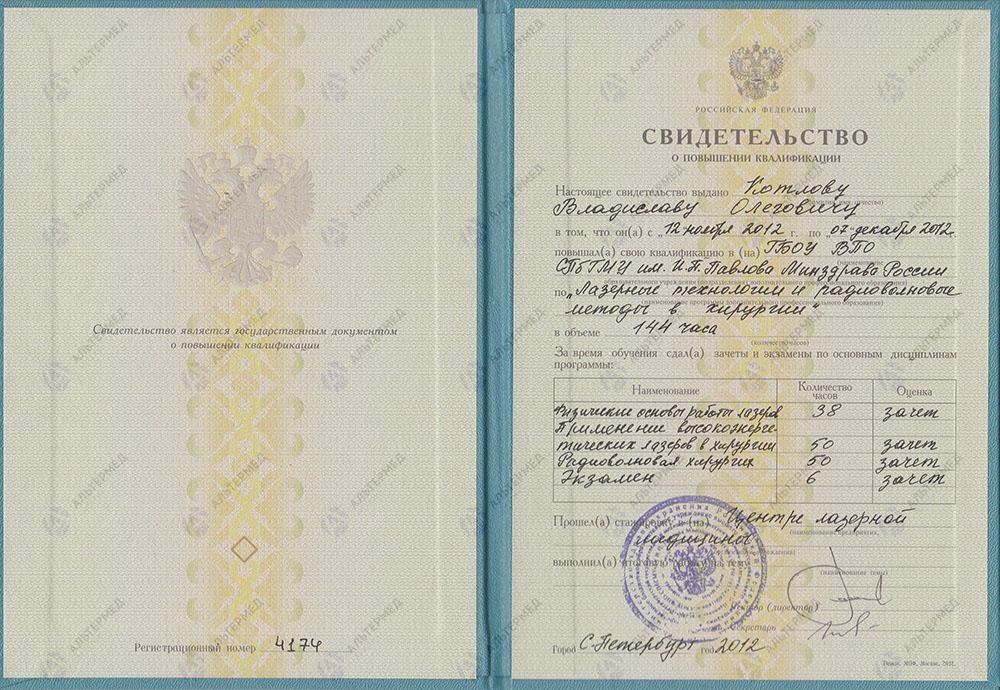 Свидетельство является государственным документом
о повышении квалификации
Регистрационный номер 4174
РОССИЙСКАЯ ФЕДЕРАЦИЯ
СВИДЕТЕЛЬСТВО
О ПОВЫШЕНИИ КВАЛИФИКАЦИИ
Настоящее свидетельство выдано Котлову
Владиславу Олеговичу
в том, что он(а) с „12 ноября 2012 г. по „07 декабря 2012г.
повышал(а) свою квалификацию в (на) ГБОУ ВПО
СПбГМУ им. И.П. Павлова Минздрава России
по „Лазерные технологии и радиоволновые
методы в хирургии“
в объеме 144 часа
(количество часов)
За время обучения сдал(а) зачеты и экзамены по основным дисциплинам
программы:
Наименование Количество часов Оценка
Физические основы работы лазеров 38 зачет
Применение высокоэнерге-
тических лазеров в хирургии 50 зачет
Радиоволновая хирургия 50 зачет
Экзамен 6 зачет
Прошел(а) стажировку в (на) Центре лазерной
(наименование предприятия,
медицины
выполнил(а) итоговую работу на тему
(наименование темы)
Ректор (директор)
Секретарь
Город С-Петербург год 2012
АЛЬТЕРМЕД